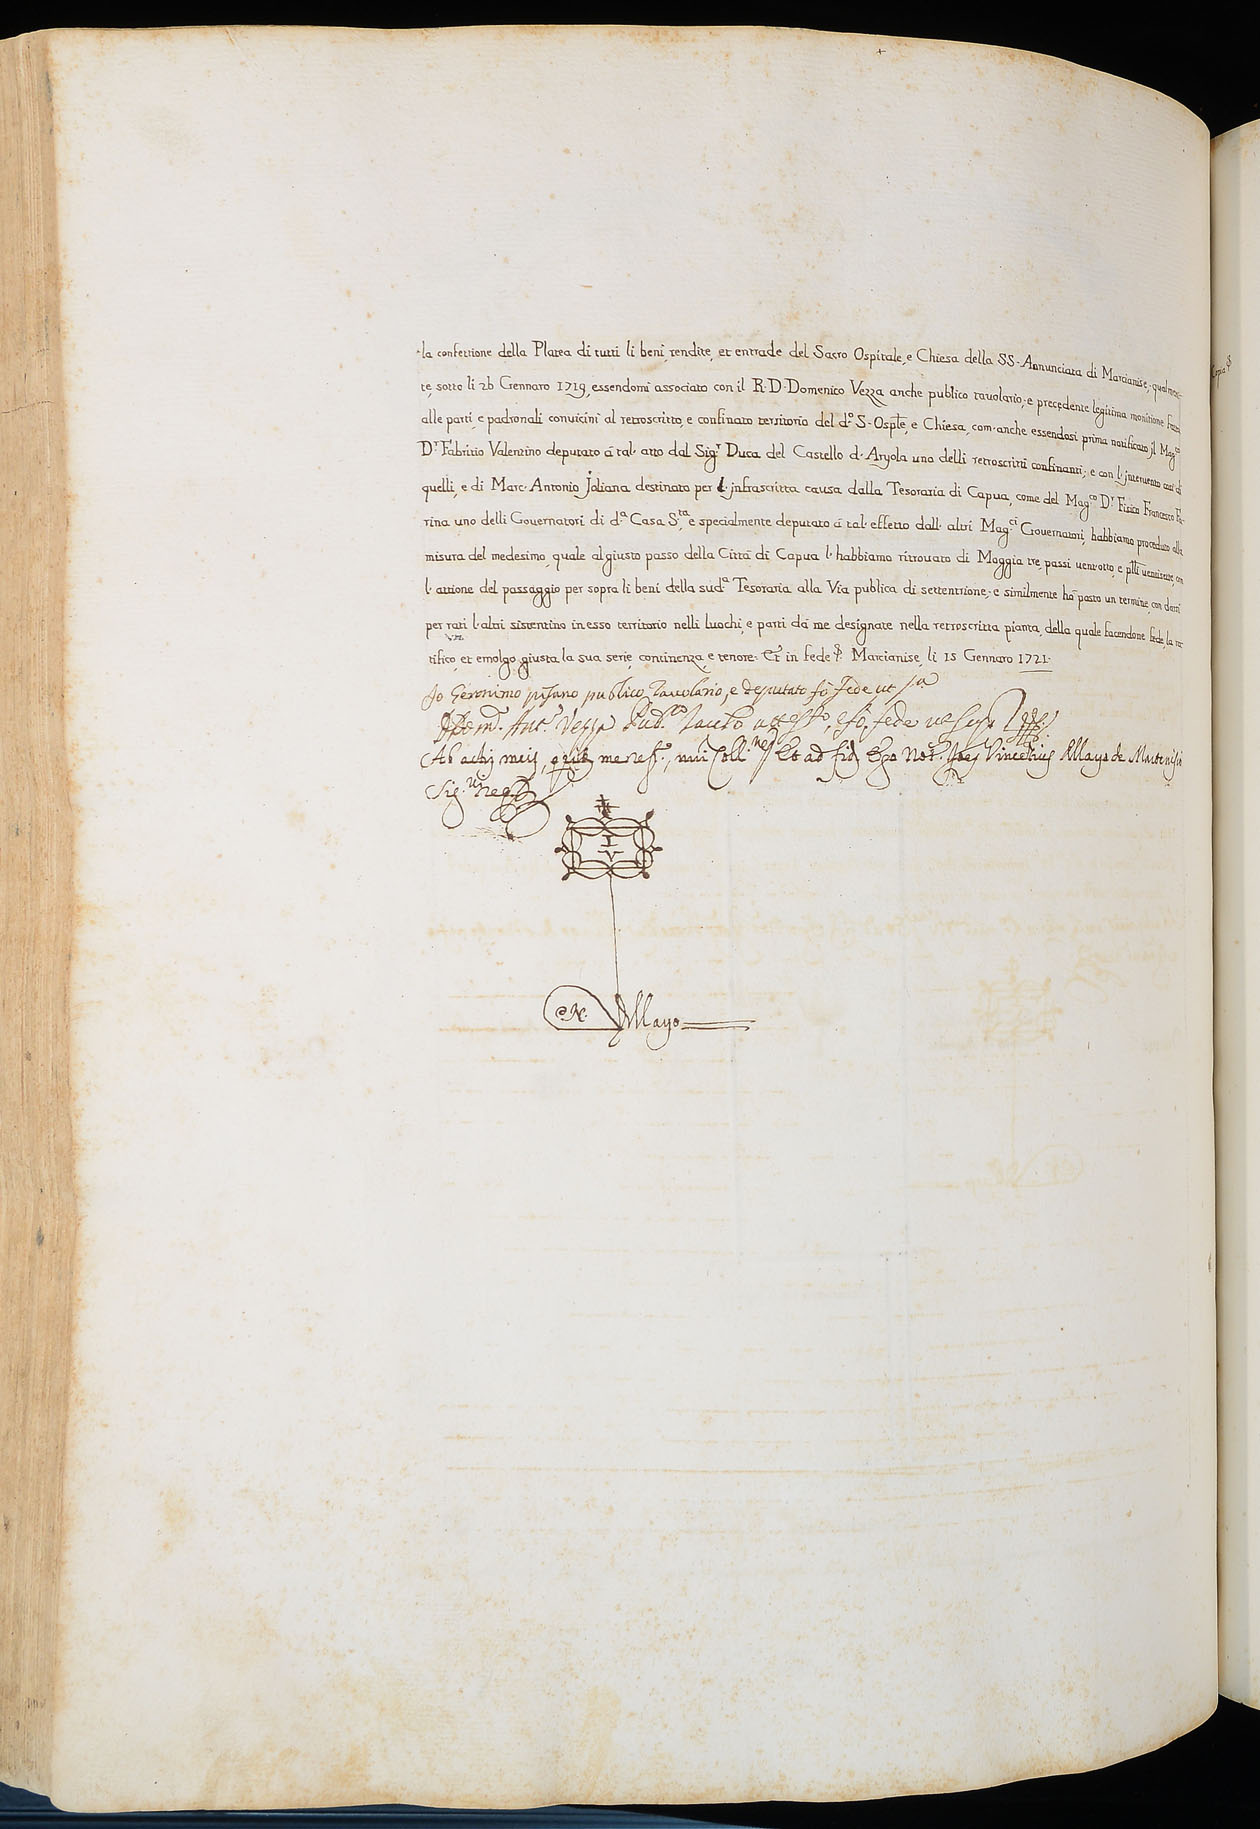 la confettione della Platea di tutti li beni, rendite, et entrade del Sacro Ospitale, e Chiesa della SS. Annunciata di Marcianise, qualmen-
te, sotto li 26 Gennaro 1719, essendomi associato con il R. D. Domenico Vezza anche publico tavolario, e precedente legitima monitione
alle parti, e padronali convicini al retroscritto, e confinato territorio del d.º S. Osple, e Chiesa, com'anche essendosi prima notificato jl Mag.co
D.r Fabritio Valentino deputato à tal'atto dal Sig.r Duca del Castello d'Aryola uno delli retroscritti confinanti; e con l'jntervento così di
quelli, e di Marc'Antonio Joliana destinato per l'jnfrascritta causa dalla Tesoraria di Capua, come del Mag.co D.r Fisico Francesco Fa-
rina uno delli Governatori di d.ª Casa S.ta, e specialmente deputato à tal'effetto dall'altri Mag.ci Governatori, habbiamo proceduto alla
misura del medesimo, quale al giusto passo della Città di Capua l'habbiamo ritrovato di Moggia tre, passi vent'otto, e con
l'attione del passaggio per sopra li beni della sud.ª Tesoraria alla Via publica di settentrione; e similmente hò posto un termine, con
per l'altri sistentino in esso territorio nelli luochi, e parti dà me designate nella retroscritta pianta, della quale facendone fede, la ra-
tifico, et emolgo giusta la sua serie, continenza, e tenore. Et in fede &. Marcianise, li 15 Gennaro 1721.
Jo Geronimo pisano publico Tavolario, e deputato fò fede ut sª
Vezza Tavol.º attesto, e fò fede
Ab actis meis, Et ad fid. Ego Not. Vincentius Mayo de
Sig.
I
V
N. Mayo
Copia